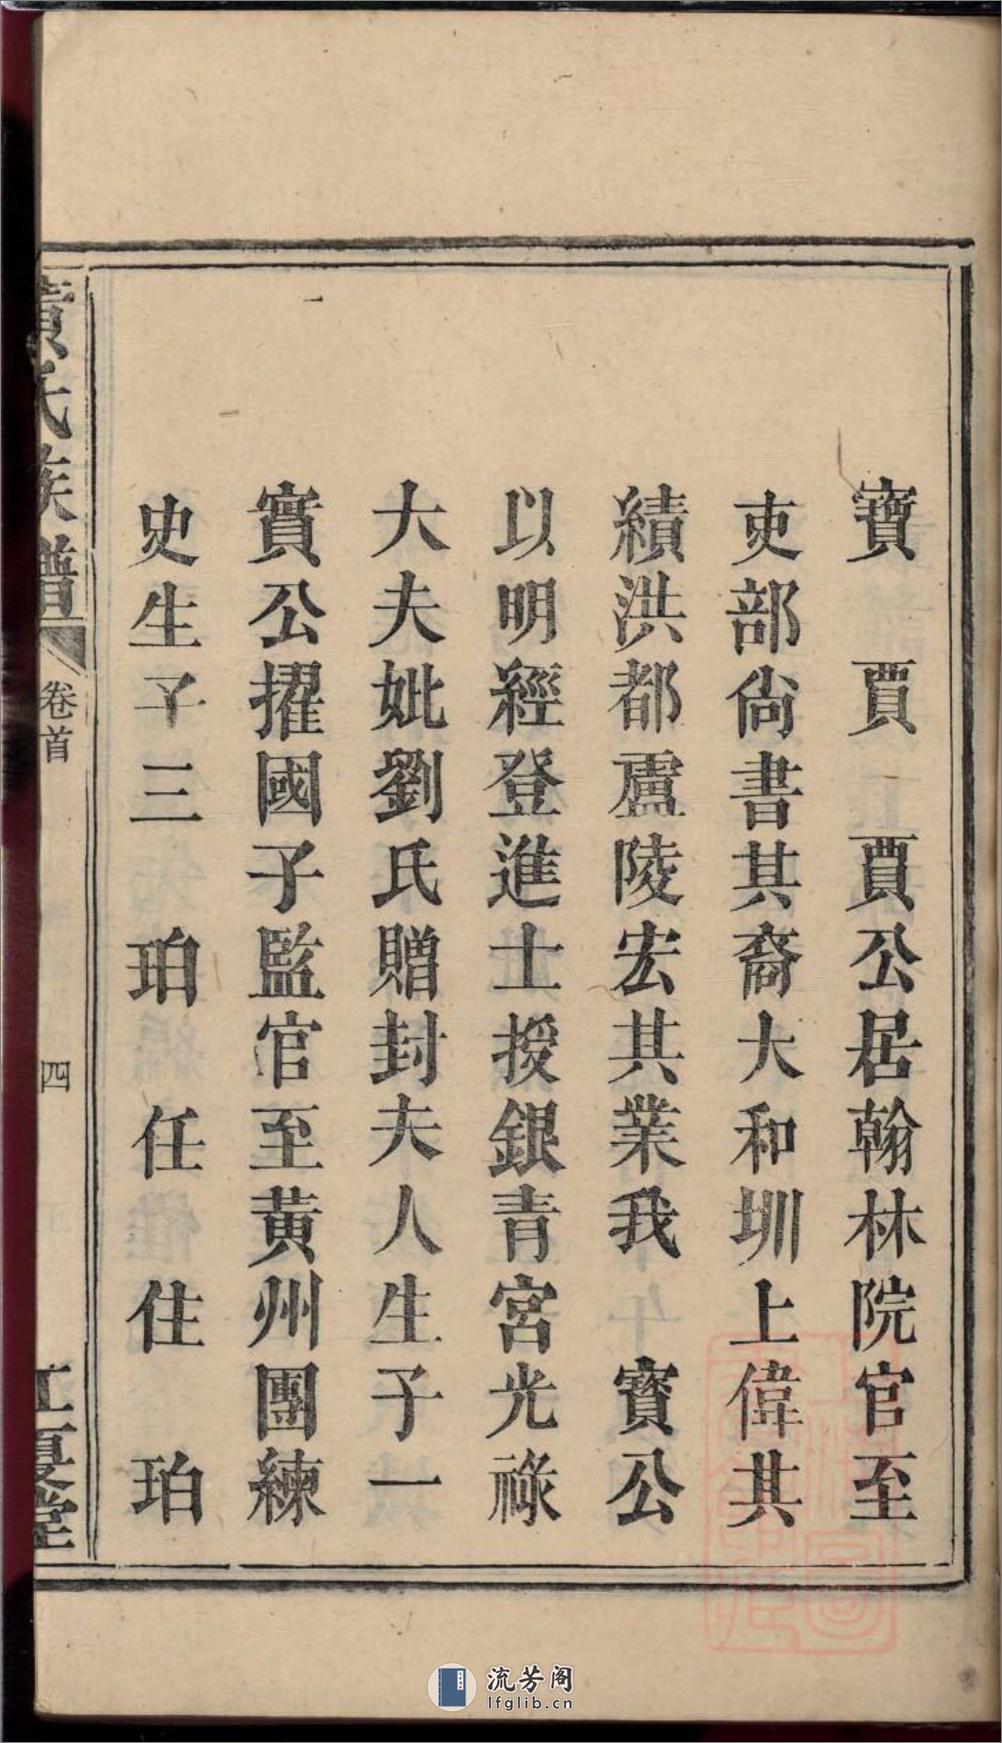 寶 賈 賈公居翰林院官至
吏部尙書其裔大和圳上偉其
績洪都廬陵宏其業我 寳公
以明經登進士授銀青宮光祿
大夫妣劉氏贈封夫人生子一
實公擢國子監官至黄州團練
史生子三 珀 任 住 珀
黄氏族譜 卷首 四 江夏堂
流芳阁
lfglib.cn